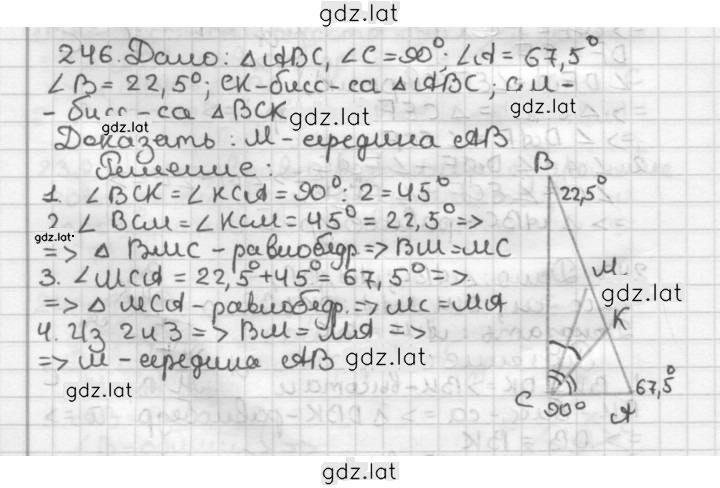 gdz.lat
246. Дано: △ABC, ∠C = 90°; ∠A = 67,5°
∠B = 22,5°; CK-бисс-са △ABC; CM-
- бисс-са △BCK
gdz.lat
gdz.lat
gdz.lat
Доказать: M - середина AB
Решение:
1. ∠BCK = ∠KCA = 90° : 2 = 45°
2. ∠BCM = ∠KCM = 45° = 22,5° =>
gdz.lat
=> △BMC - равнобедр. => BM = MC
3. ∠MCA = 22,5° + 45° = 67,5° =>
=> △MCA - равнобедр. => MC = MA
4. Из 2 и 3 => BM = MA =>
=> M - середина AB
gdz.lat
gdz.lat
B
22,5°
M
gdz.lat
K
C
90°
A
67,5°
gdz.lat